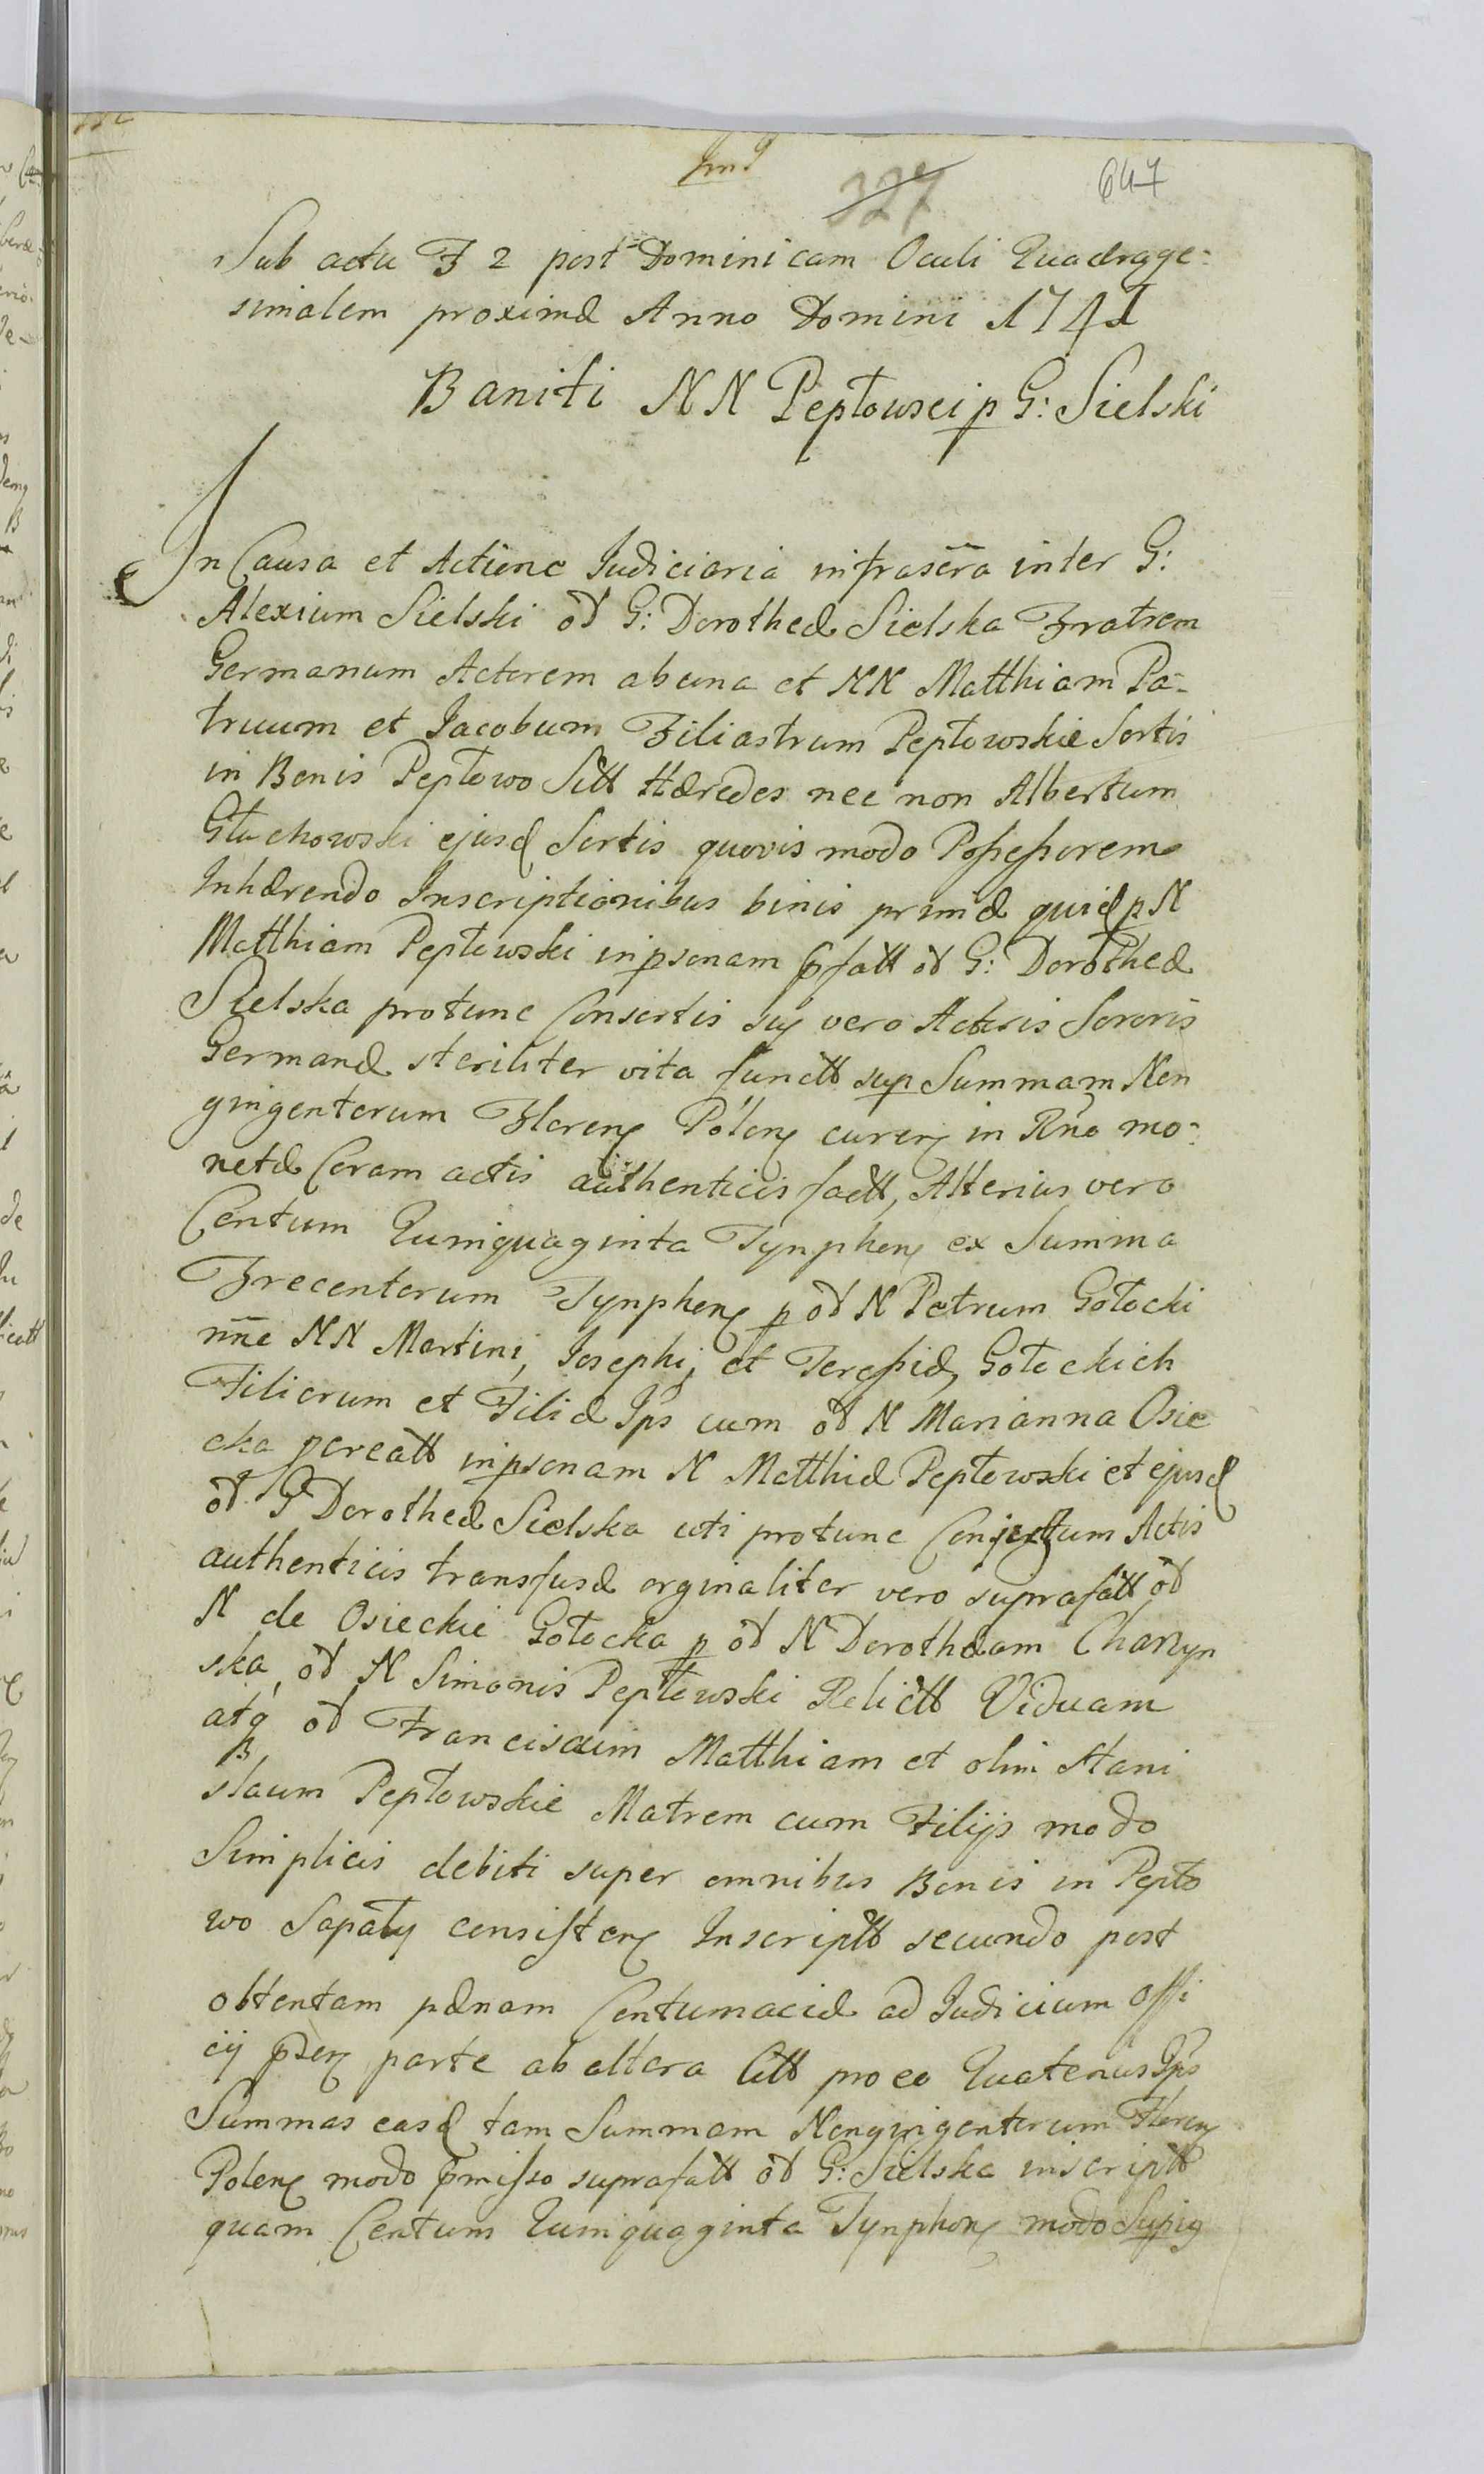 327 647
Sub actu F 2 post Dominicam Oculi Quadrage-
simalem proximæ Anno Domini 1741
Baniti NN Pepłowsci p G: Sielski
In Causa et Actione Judiciaria infrascra inter G:
Alexium Sielski oł G: Dorotheæ Sielska Fratrem
Germanum Actorem ab una et NN Matthiam Pa-
truum et Jacobum Filiastrum Pepłowskie Sortis
in Bonis Pepłowo Sitt Hæredes nec non Albertum
Głuchowski ejusd Sortis quovis modo Possessorem
Inhærendo Inscriptionibus binis primæ quid p N
Matthiam Pepłowski in psonam pfatt oł G: Dorotheæ
Sielska protunc Consortis suæ vero Actoris Sororis
Germanæ steriliter vita functt sup Summam Non
gingentorum Floren Polon curren in Rno mo-
netæ Coram actis authenticis factt, Alterius vero
Centum Quinquaginta Tynphon ex Summa
Trecentorum Tynphon p oł N Petrum Gołocki
nne NN Martini, Josephi, et Teressiæ, Gołockich
Filiorum et Filiæ Ips cum oł N Marianna Osie
cka pcreatt in psonam N Matthiæ Pepłowski et ejusd
oł G Dorotheæ Sielska uti protunc Conjugum Actis
authenticis transfusæ orginaliter vero suprafatt oł
N de Osieckie Gołocka p oł N Dorothæam Charzyn
ska, oł N Simonis Pepłowski Relictt Viduam
atq oł Franciscum Matthiam et olim Stani
slaum Pepłowskie Matrem cum Filijs modo
Simplicis debiti super omnibus Bonis in Pepło
wo Sapaty consisten Inscriptt secundo post
obtentam pænam Contumaciæ ad Judicium Offi
cij pszen parte ab altera Citt pro eo Quatenus Ips
Summas easd tam Summam Nongingentorum Floren
Polon modo pmisso suprafatt oł G: Sielska inscriptt
quam Centum Quinquaginta Tynphon modo Supig